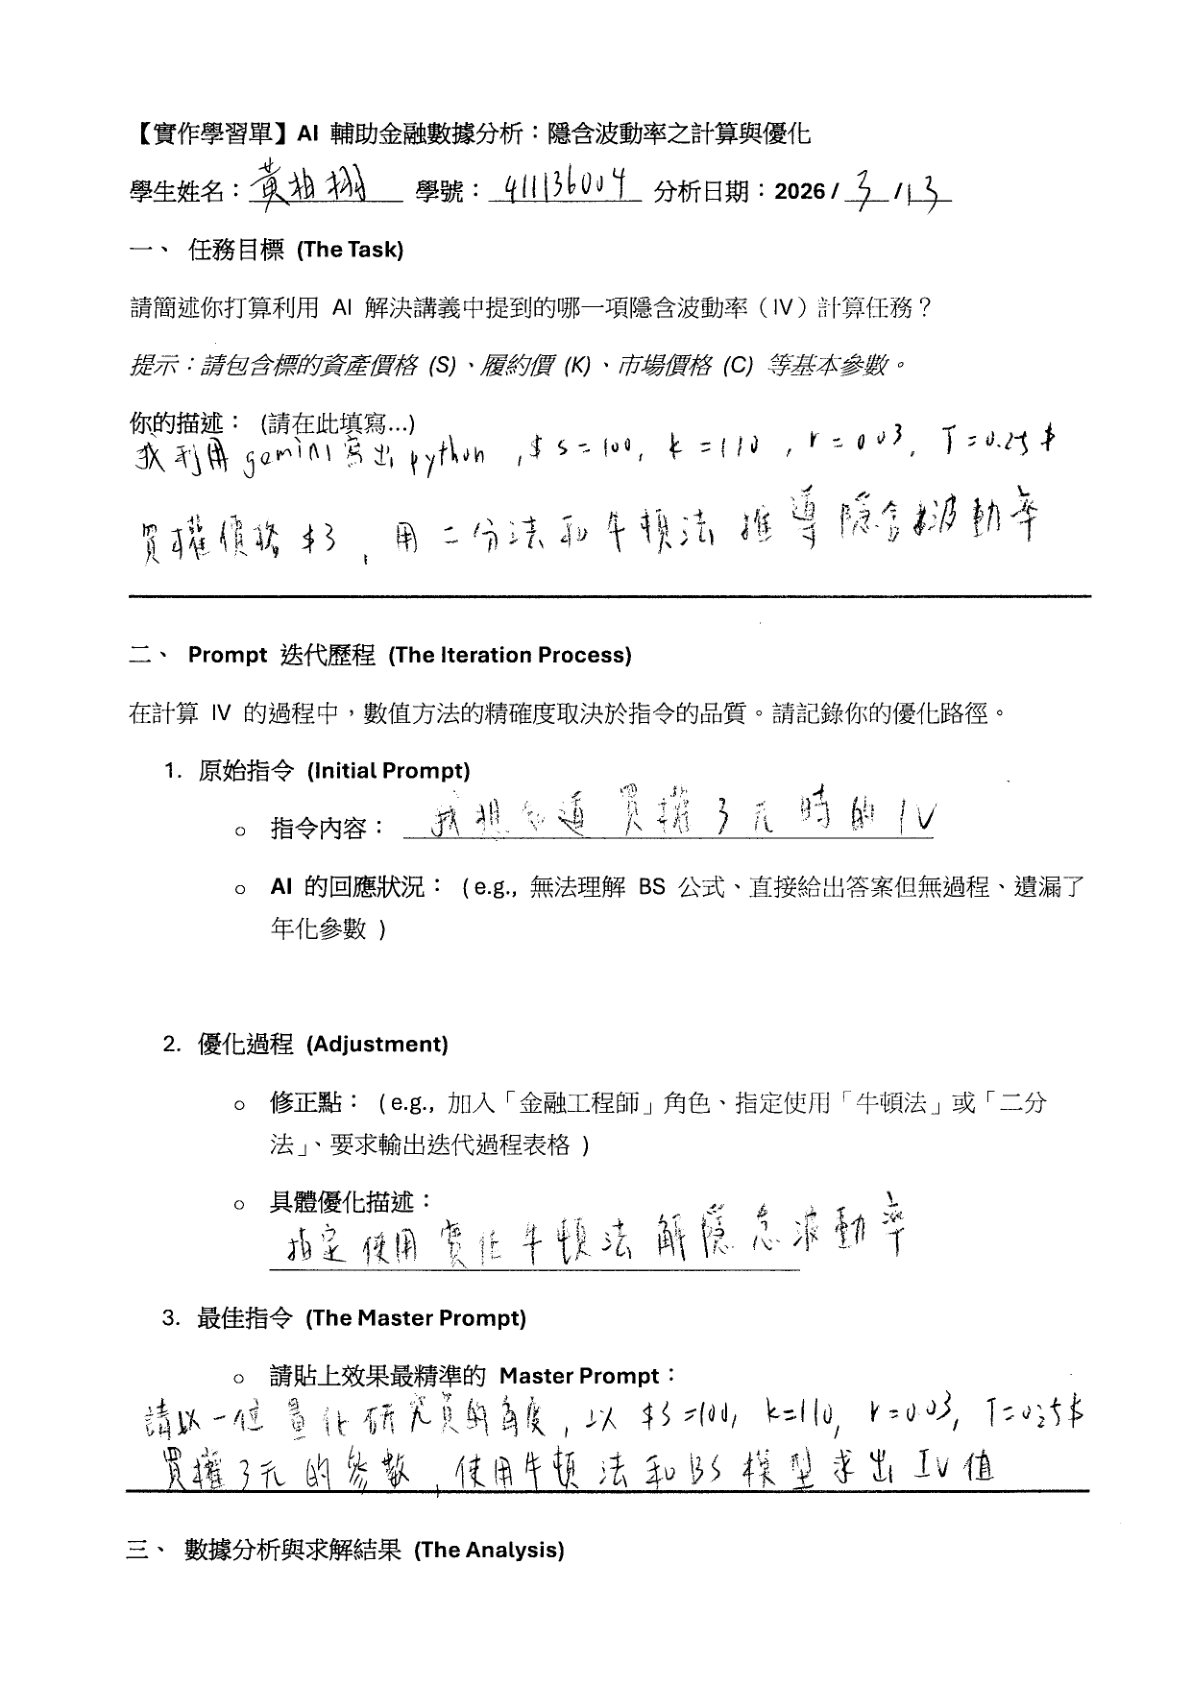 【實作學習單】AI 輔助金融數據分析：隱含波動率之計算與優化
學生姓名：黃柏栩 學號：411136004 分析日期：2026 / 3 / 13
一、 任務目標 (The Task)
請簡述你打算利用 AI 解決講義中提到的哪一項隱含波動率（IV）計算任務？
提示：請包含標的資產價格 (S)、履約價 (K)、市場價格 (C) 等基本參數。
你的描述： (請在此填寫...)
我利用gemini寫出python ,$ S=100, k=110 , r=0.03, T=0.25$
買權價格$3, 用二分法和牛頓法推導隱含波動率
二、 Prompt 迭代歷程 (The Iteration Process)
在計算 IV 的過程中，數值方法的精確度取決於指令的品質。請記錄你的優化路徑。
1. 原始指令 (Initial Prompt)
o 指令內容： 我想知道買權3元時的IV
o AI 的回應狀況： ( e.g., 無法理解 BS 公式、直接給出答案但無過程、遺漏了
年化參數 )
2. 優化過程 (Adjustment)
o 修正點： ( e.g., 加入「金融工程師」角色、指定使用「牛頓法」或「二分
法」、要求輸出迭代過程表格 )
o 具體優化描述：
指定使用實作牛頓法解隱含波動率
3. 最佳指令 (The Master Prompt)
o 請貼上效果最精準的 Master Prompt：
請以一位量化研究員的角度, 以 $S=100, k=110, r=0.03, T=0.25$
買權3元的參數, 使用牛頓法和BS模型求出IV值
三、 數據分析與求解結果 (The Analysis)